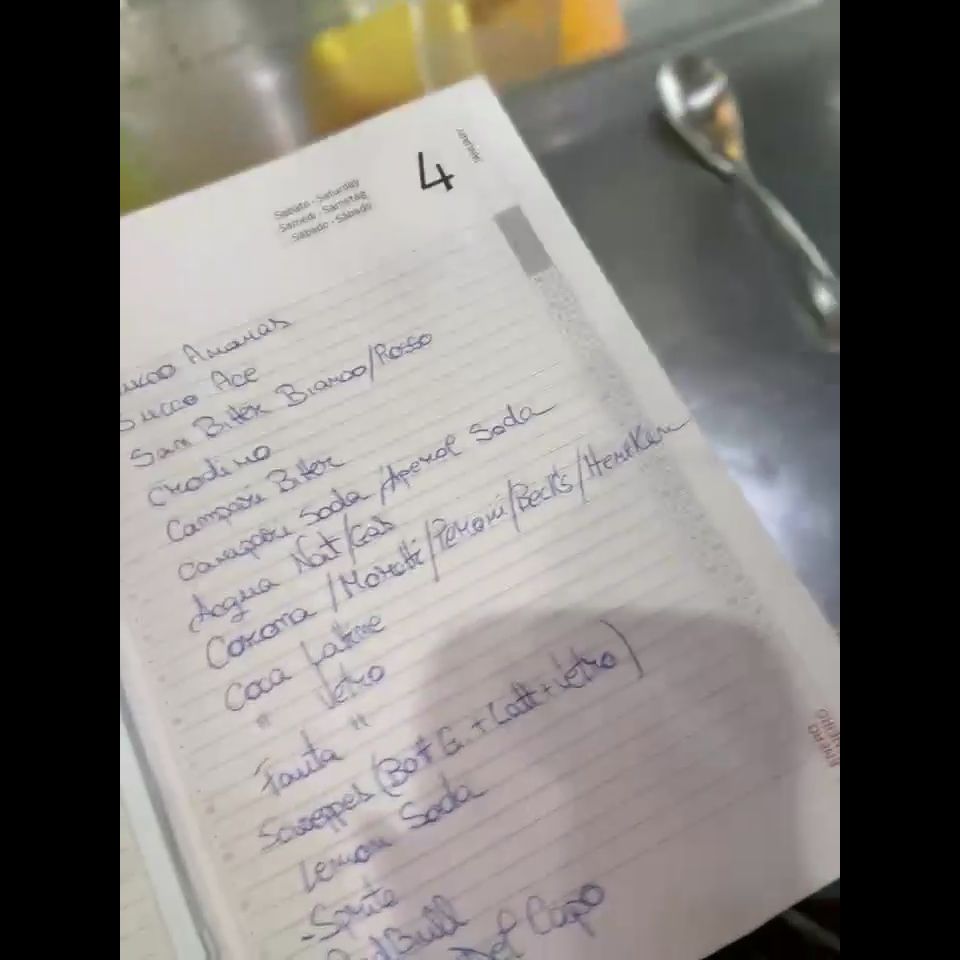 4
Sabato - Saturday
Samedi - Samstag
Sábado - Sábado
Ananas
Succo Ace
San Bitter Bianco/Rosso
Crodino
Campari Bitter
Campari Soda/Aperol Soda
Acqua Nat/Gas
Corona/Moretti/Peroni/Beck's/Heneken
Coca lattine
" Vetro
Fanta "
Sweppes (Bot G. + Latt + Vetro)
Lemon Soda
-Sprite
RedBull
Del Capo